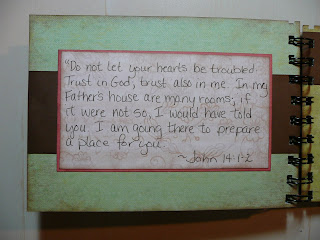 "Do not let your hearts be troubled.
Trust in God; trust also in me. In my
Father's house are many rooms; if
it were not so, I would have told
you. I am going there to prepare
a place for you.
~John 14:1-2